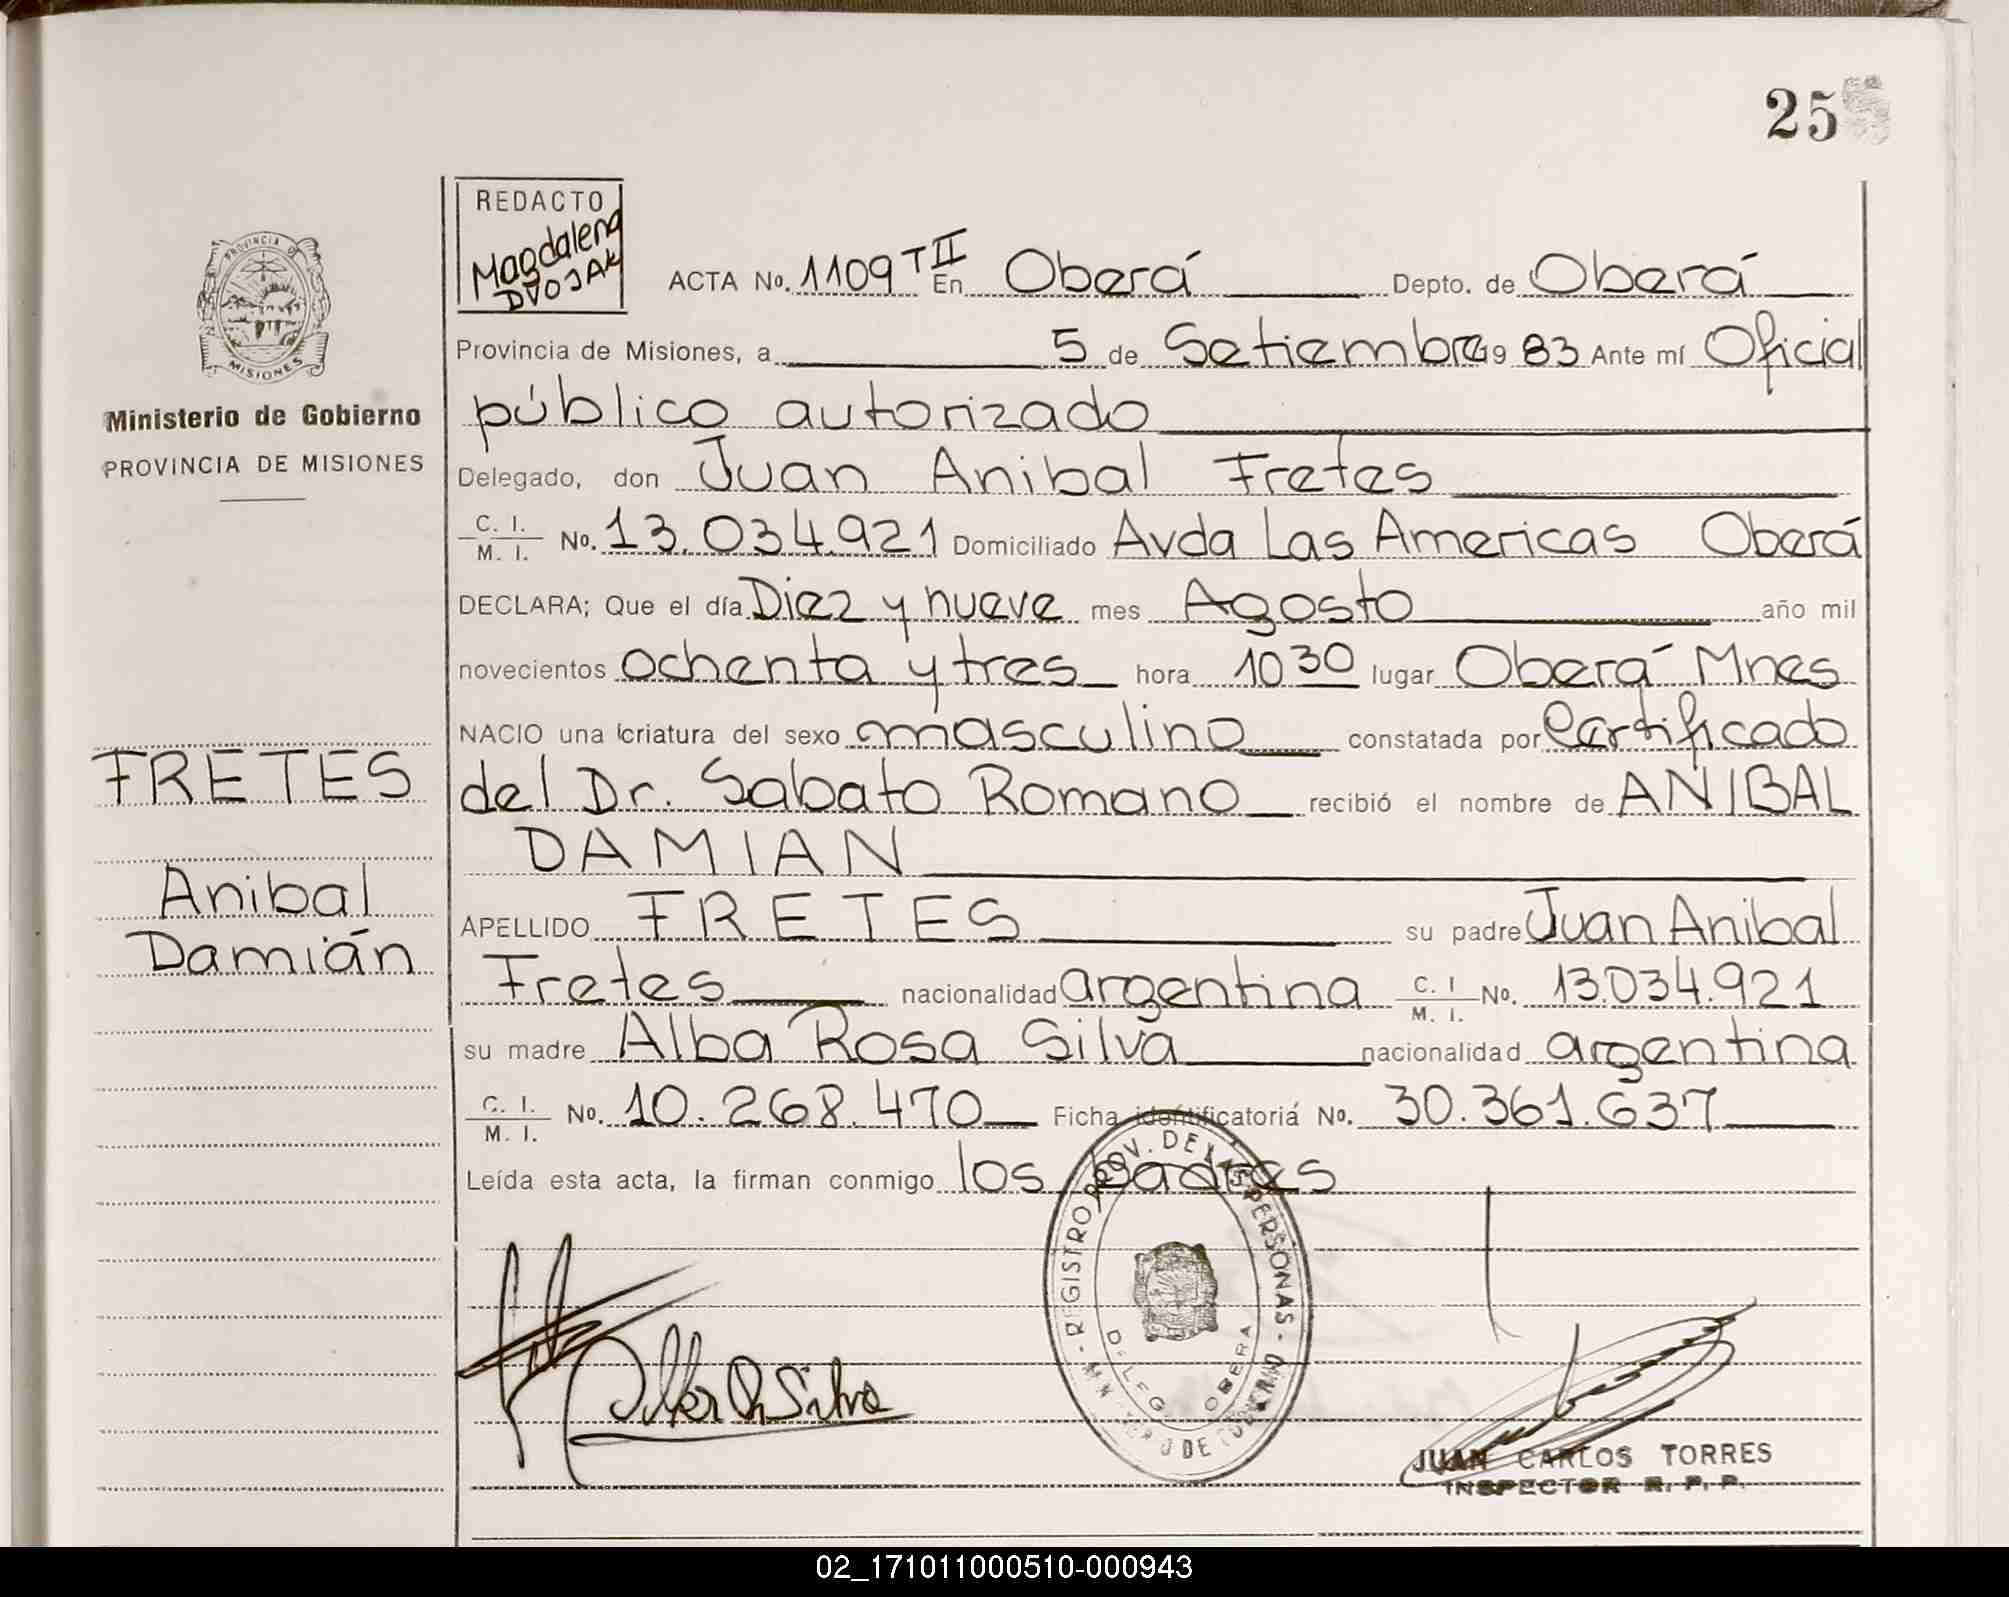 25
REDACTO
Magdalena
DVOJAK
PROVINCIA DE
MISIONES
Ministerio de Gobierno
PROVINCIA DE MISIONES
ACTA No. 1109 T II En Oberá Depto. de Oberá
Provincia de Misiones, a 5 de Setiembre 19 83 Ante mí Oficial
público autorizado
Delegado, don Juan Anibal Fretes
C. I. M. I. No. 13.034.921 Domiciliado Avda Las Americas Oberá
DECLARA; Que el día Diez y nueve mes Agosto año mil
novecientos ochenta y tres hora 10 30 lugar Oberá Mnes
NACIO una criatura del sexo masculino constatada por Certificado
del Dr. Sabato Romano recibió el nombre de ANIBAL
DAMIAN
APELLIDO FRETES su padre Juan Anibal
Fretes nacionalidad argentina C. I M. I. No. 13.034.921
su madre Alba Rosa Silva nacionalidad argentina
C. I. M. I. No. 10.268.470 Ficha identificatoria No. 30.361.637
Leída esta acta, la firman conmigo los padres
FRETES
Anibal
Damián
REGISTRO PROV. DE LAS PERSONAS
DELEG. OBERA
Alba R Silva
JUAN CARLOS TORRES
INSPECTOR R. P. P.
02_171011000510-000943